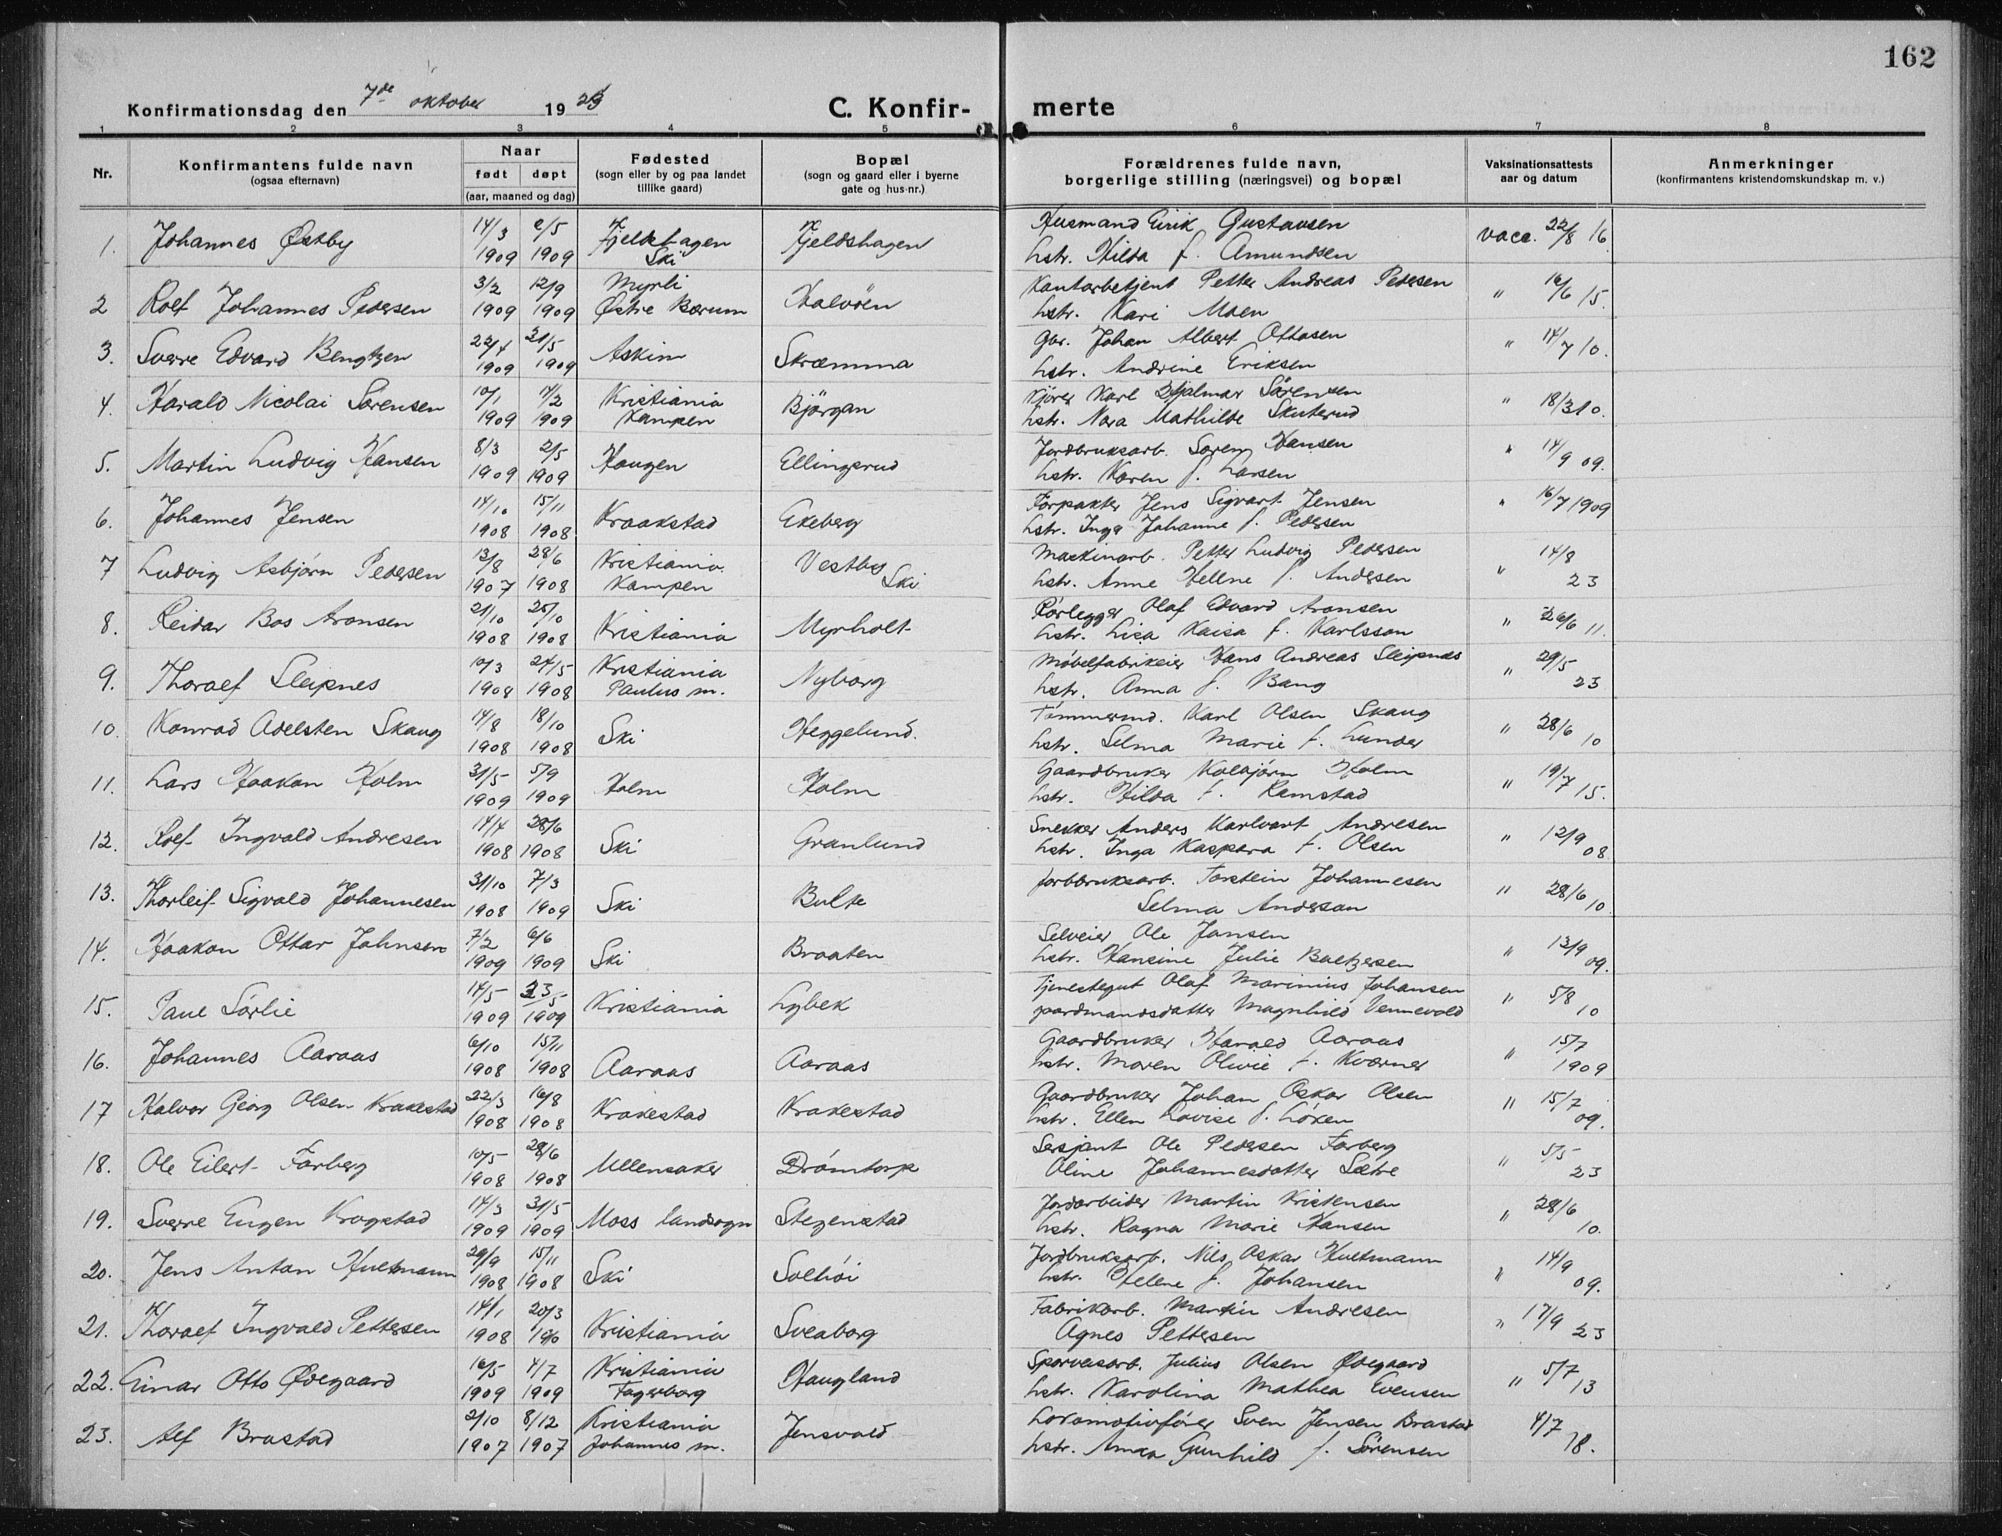 162
Konfirmationsdag den 7de oktober 1923 C. Konfir- merte
1 2 3 4 5 6 7 8
Nr. Konfirmantens fulde navn (ogsaa efternavn) Naar født døpt (aar, maaned og dag) Fødested (sogn eller by og paa landet tillike gaard) Bopæl (sogn og gaard eller i byerne gate og hus-nr.) Forældrenes fulde navn, borgerlige stilling (næringsvei) og bopæl Vaksinationsattests aar og datum Anmerkninger (konfirmantens kristendomskundskap m. v.)
1. Johannes Østby 14/3 1909 2/5 1909 Kjeldshagen Ski Kjeldshagen Husmand Eirik Gustavsen
hstr. Hilda f. Amundsen vacc. 22/8 16.
2 Rolf Johannes Pedersen 3/2 1909 12/9 1909 Myrli Østre Bærum Halvöen Kantarbetjent Petter Andreas Pedersen
hstr. Kari Moen " 16/6 15.
3. Sverre Edvard Bengtzen 22/4 1909 31/5 1909 Askim Skræmma Gbr. Johan Albert Ottosen
hstr. Andrine Eriksen " 14/7 10.
4. Harald Nicolai Sørensen 10/1 1909 14/2 1909 Kristiania Kampen Bjørgan Kjører Karl Hjalmar Sörensen
hstr. Nora Mathilde Skuterud " 18/3 10.
5. Martin Ludvig Hansen 8/3 1909 2/5 1909 Haugen Ellingsrud Jordbruksarb. Soren Hansen
hstr. Karen f. Larsen " 14/9 09.
6. Johannes Jensen 14/10 1908 15/11 1908 Kraakstad Ekeberg Forpakter Jens Sigvart Jensen
hstr. Inga Johanne f. Pedersen " 16/7 1909
7 Ludvig Asbjørn Pedersen 13/8 1907 28/6 1908 Kristiania Kampen Vestby Ski Maskinarb. Petter Ludvig Pedersen
hstr. Anne Hellne f. Andersen " 14/8 23
8. Reidar Bos Aronsen 21/10 1908 25/10 1908 Kristiania Myrholt Rørlegger Olaf Edvard Aronsen
hstr. Lisa Kaisa f. Karlsson " 26/6 11.
9. Thoralf Sleipnes 10/3 1908 24/5 1908 Kristiania Paulus m. Nyborg Møbelfabrikeier Hans Andreas Sleipnes
hstr. Anna f. Bang " 29/5 23
10. Konrad Adelsten Skaug 14/8 1908 18/10 1908 Ski Heggelund. Tömmermd. Karl Olsen Skaug
hstr. Selma Marie f. Lunder " 28/6 10
11. Lars Haakon Holm 31/5 1909 5/9 1909 Holm Holm Gaardbruker Kolbjørn Holm
hstr. Hilda f. Ramstad " 19/7 15.
12. Rolf Ingvald Andresen 14/4 1908 28/6 1908 Ski Granlund Snekker Anders Karlvart Andresen
hstr. Inga Kaspara f. Olsen " 12/9 08
13. Thorleif Sigvald Johannesen 31/10 1908 7/3 1909 Ski Bulte Jordbruksarb. Torstein Johannesen
Selma Anderson " 28/6 10
14. Haakon Ottar Johnsen 7/2 1909 6/6 1909 Ski Braaten Selveier Ole Jonsen
hstr. Hansine Julie Baltzersen " 13/9 09.
15. Paul Sørlie 14/5 1909 23/5 1909 Kristiania Lybek Tjenestegut Olaf Marinius Johansen
gaardmandsdatter Magnhild Vennevold " 5/8 10
16. Johannes Aaraas 6/10 1908 15/11 1908 Aaraas Aaraas Gaardbruker Harald Aaraas
hstr. Maren Olivie f. Kværner " 15/7 1909
17 Halvor Georg Olsen Krakestad 22/3 1908 16/8 1908 Krakestad Krakestad Gaardbruker Johan Oskar Olsen
hstr. Ellen Lovise f. Løken " 15/7 09.
18. Ole Eilert Farberg 10/5 1908 28/6 1908 Ullensaker Drømtorp Sersjant Ole Pedersen Farberg
Oline Johannesdatter Sætre " 5/5 23
19. Sverre Eugen Krogstad 14/3 1909 31/5 1909 Moss landsogn Stegenstad Jordarbeider Martin Kristensen
hstr. Ragna Marie Hansen " 28/6 10.
20. Jens Anton Hultmann 29/9 1908 15/11 1908 Ski Solhöi Jordbruksarb. Nils Oskar Hultmann
hstr. Hellene f. Johansen " 14/9 09.
21. Thoralf Ingvald Pettersen 14/1 1908 20/3 Kristiania Sveaborg Fabrikarb. Martin Andresen
Agnes Pettersen " 17/9 23
22. Einar Otto Ødegaard 16/5 1909 4/7 1909 Kristiania Fagerborg Haugland Sporveisarb. Julius Olsen Ødegaard
hstr. Karolina Mathea Evensen " 5/7 13
23. Alf Brastad 2/10 1907 8/12 1907 Kristiania Johannes m. Jensvold Lokomotivfører Sven Jensen Brastad
hstr. Gunhild f. Sörensen 4/7 18.